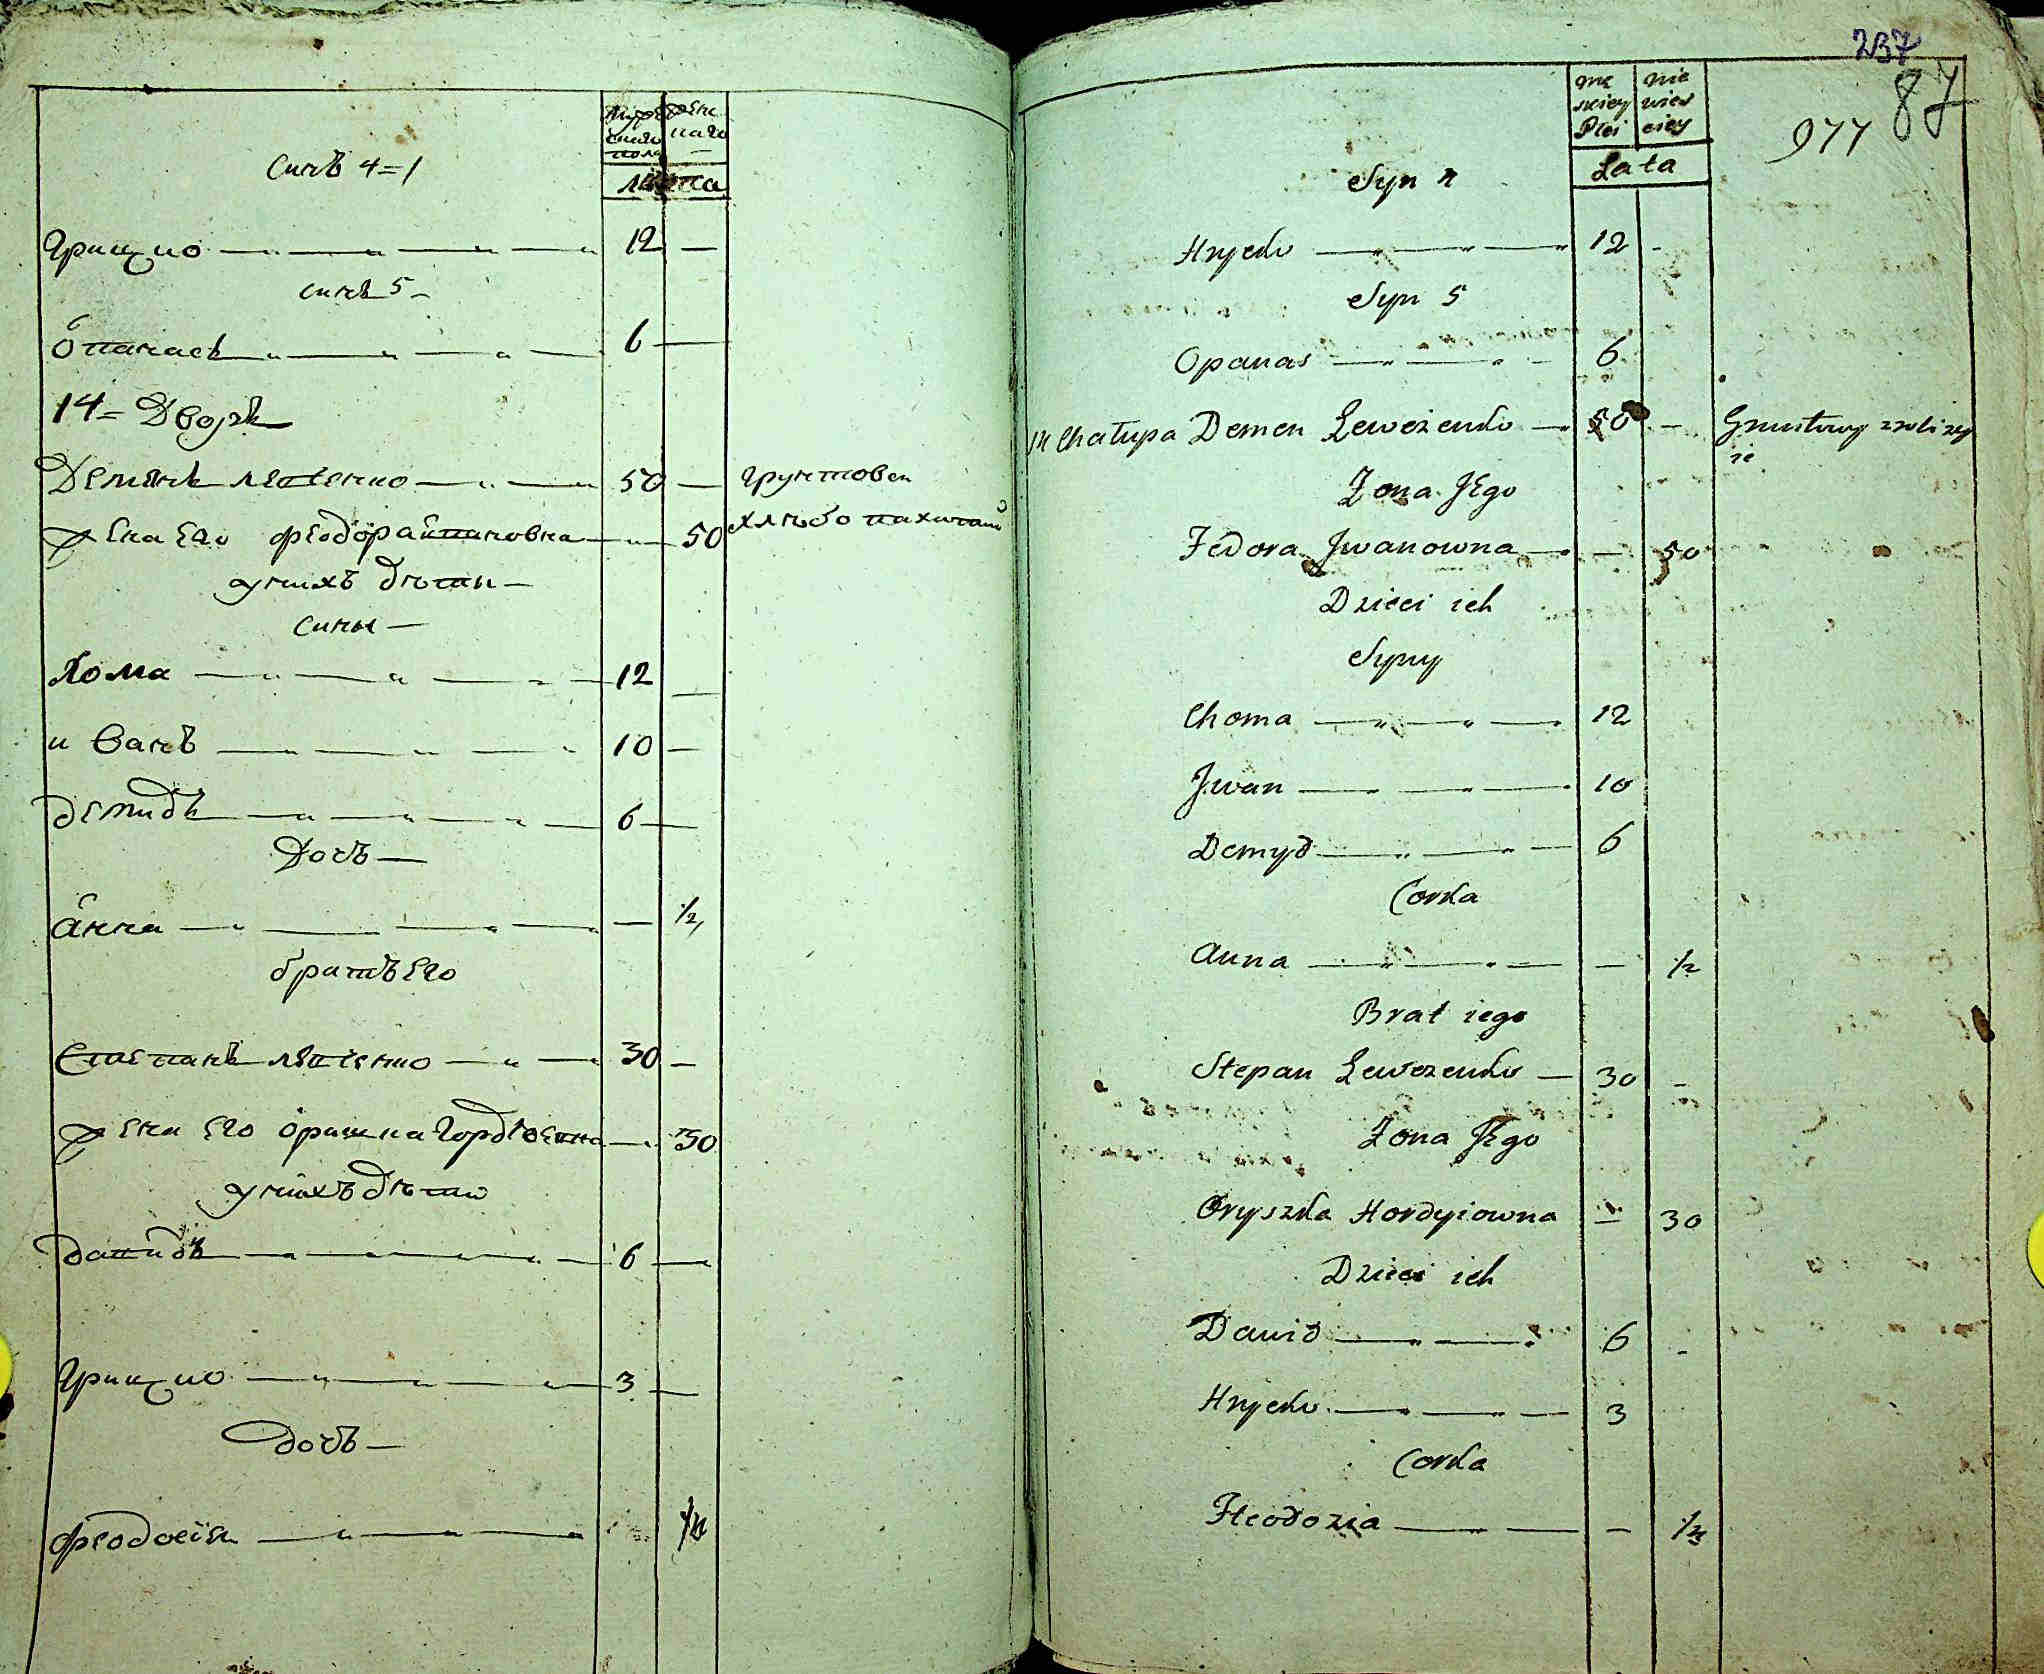 мужеска пола
женскаго
лѣта
синъ 4=1
Грицко 12 —
синъ 5 —
опанасъ 6 —
14= Дворъ
Деменъ левченко 50 — грунтовой
жена его феодора ивановна — 50 хлѣбопахатній
у нихъ дѣти —
сины —
Хома 12 —
иванъ 10 —
демидъ 6 —
Дочъ —
анна — 1/2
братъ его
Степанъ левченко 30 —
жена его оришка гордѣевна — 30
у нихъ дѣти
давидъ 6 —
Грицко 3 —
дочъ —
феодосія
237
87
977
męskiey Płci
niewiesciey
Lata
Syn 4
Hryćko 12 -
Syn 5
Opanas 6
14 Chałupa Demen Lewczenko 50 — Gruntowy
Żona Jego
Fedora Jwanowna — 50
Dzieci ich
Syny
Choma 12
Jwan 10
Demyd 6
Corka
Anna — 1/2
Brat iego
Stepan Lewczenko 30 -
Żona Jego
Oryszka Hordyiowna — 30
Dzieci ich
Dawid 6 -
Hryćko 3
Corka
Fteodozia —